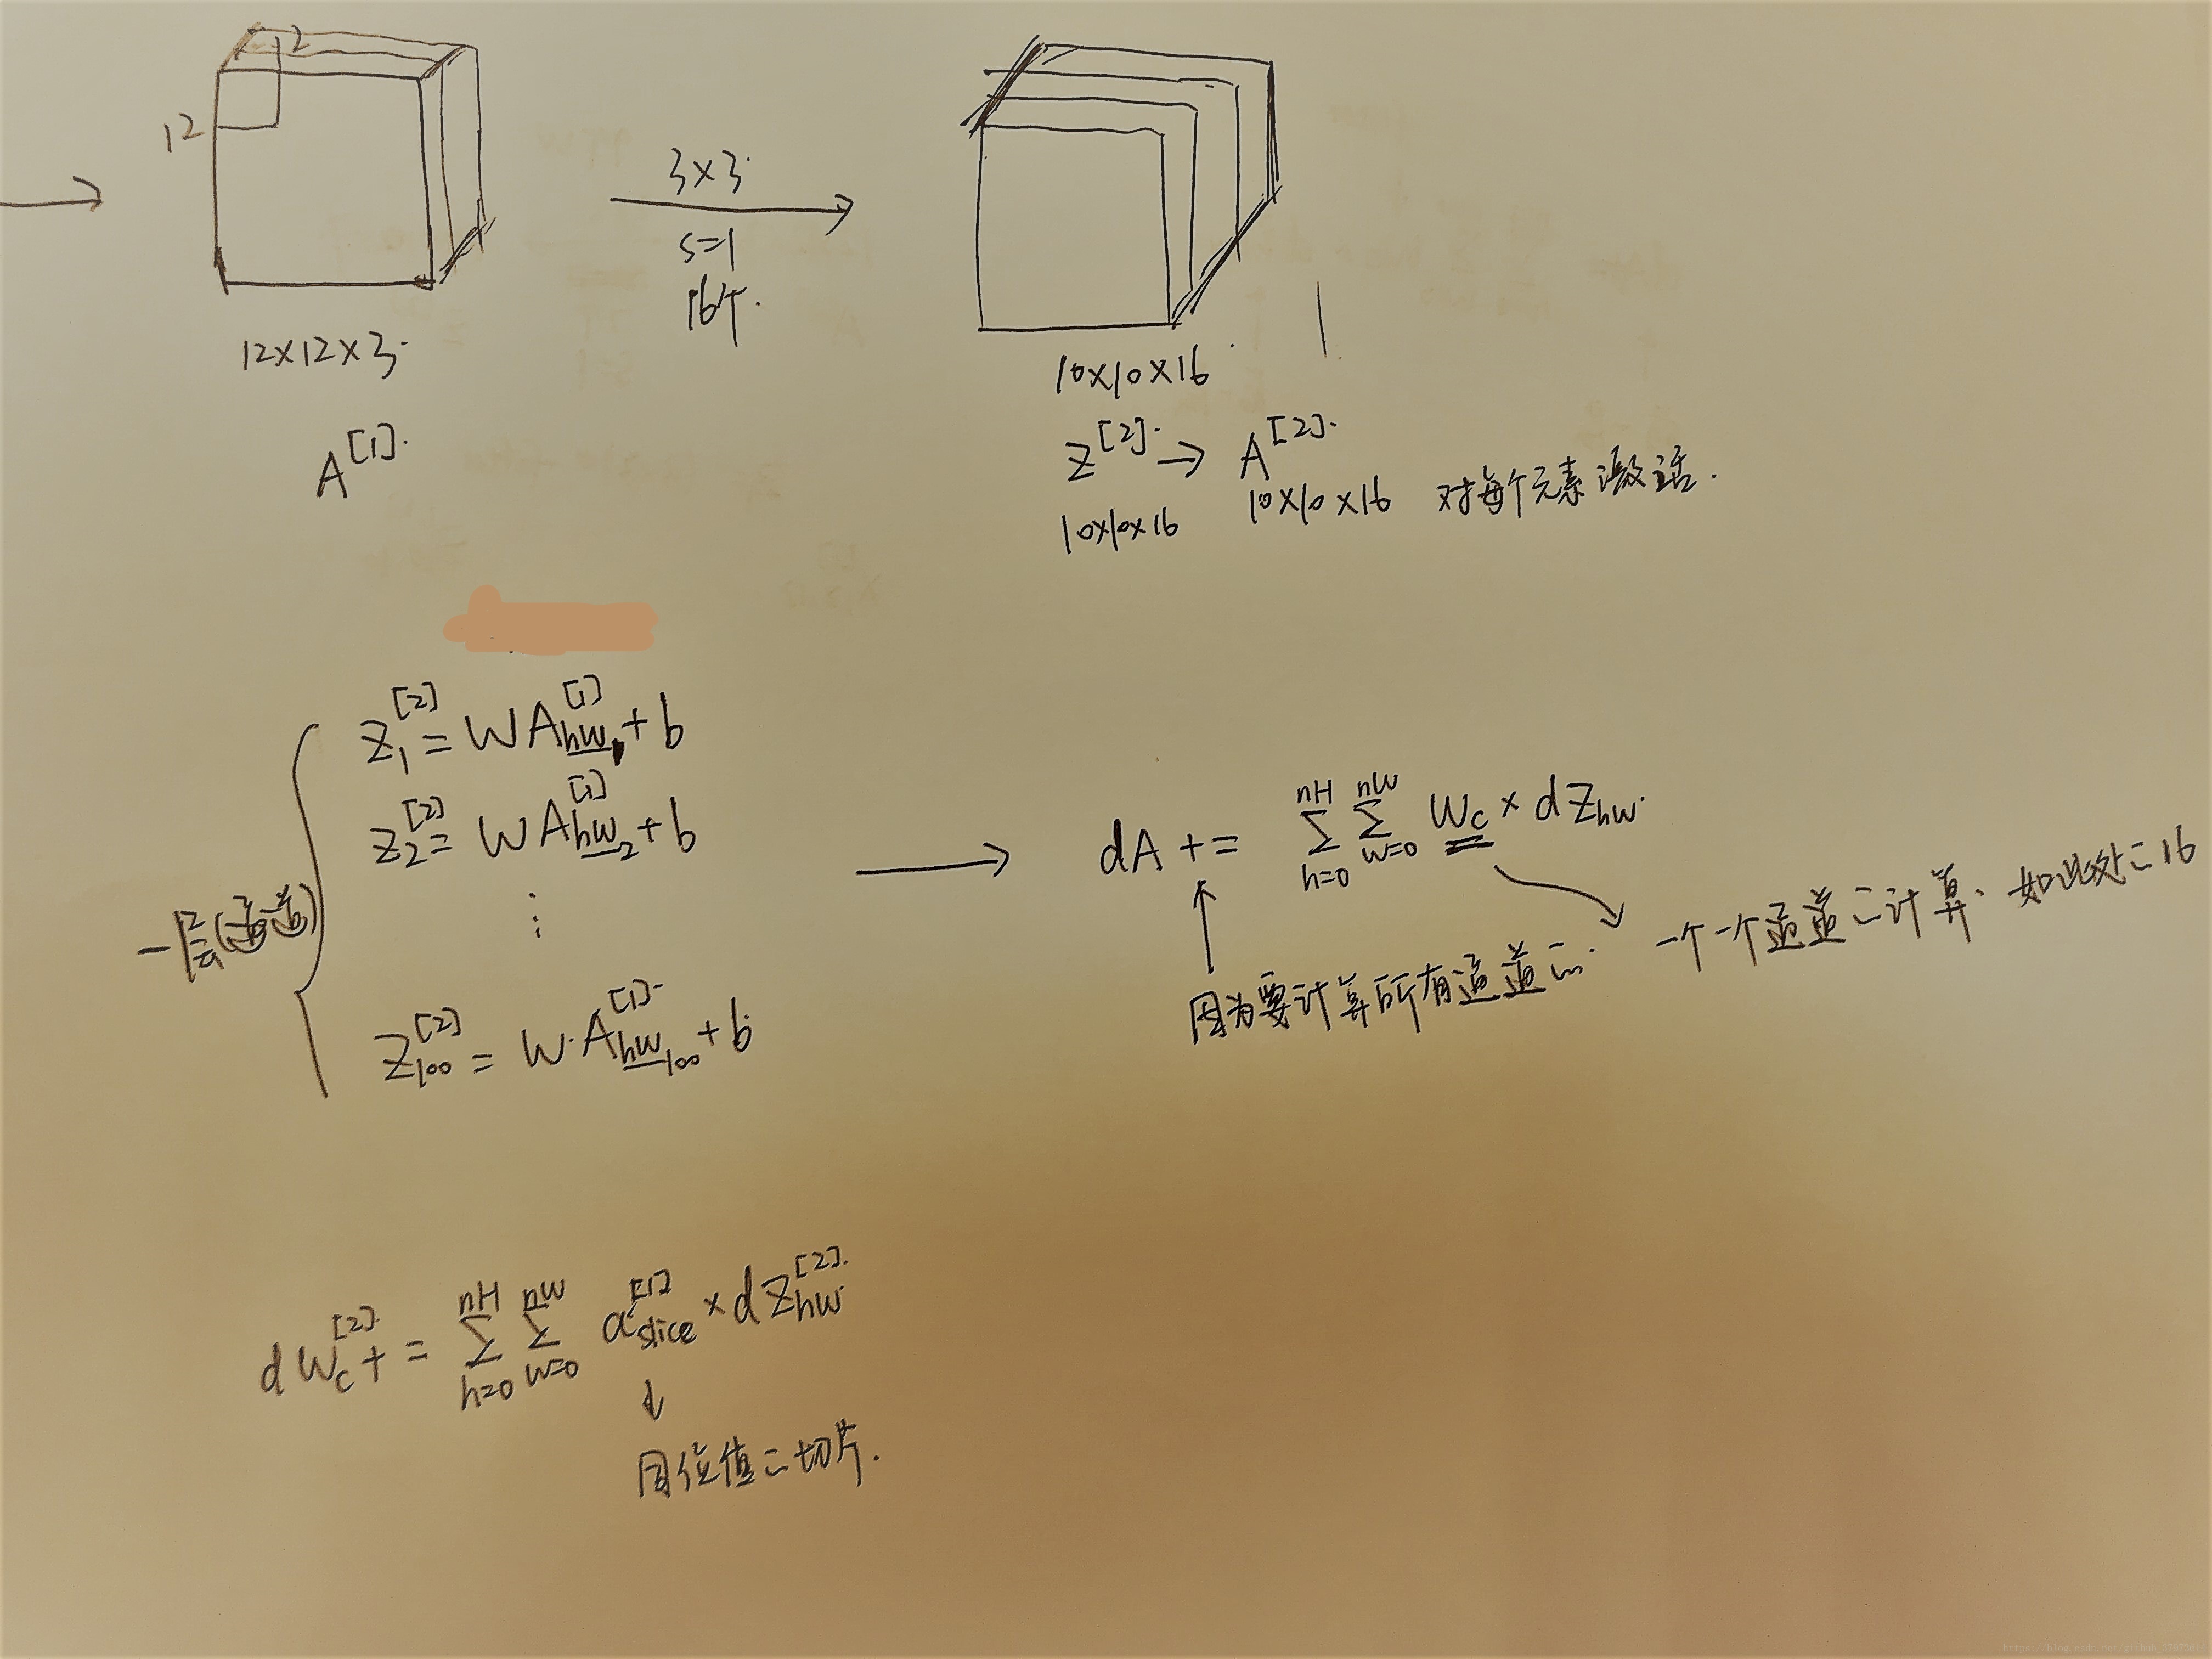 12
2
3×3
s=1
16个.
12×12×3
10×10×16
A^[1]
Z^[2] → A^[2]
10×10×16
10×10×16 对每个元素激活.
Z_1^[2] = WA_hw_1^[1] + b
Z_2^[2] = WA_hw_2^[1] + b
⋮
一层(通道)
Z_100^[2] = W·A_hw_100^[1] + b
dA += Σ_{h=0}^{nH} Σ_{w=0}^{nW} W_c × dZ_hw
因为要计算所有通道的.
一个一个通道的计算、如此处的16
dW_c^[2] += Σ_{h=0}^{nH} Σ_{w=0}^{nW} a_slice^[1] × dZ_hw^[2]
同位值的切片.